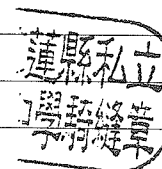 蓮縣私立
學騎縫章